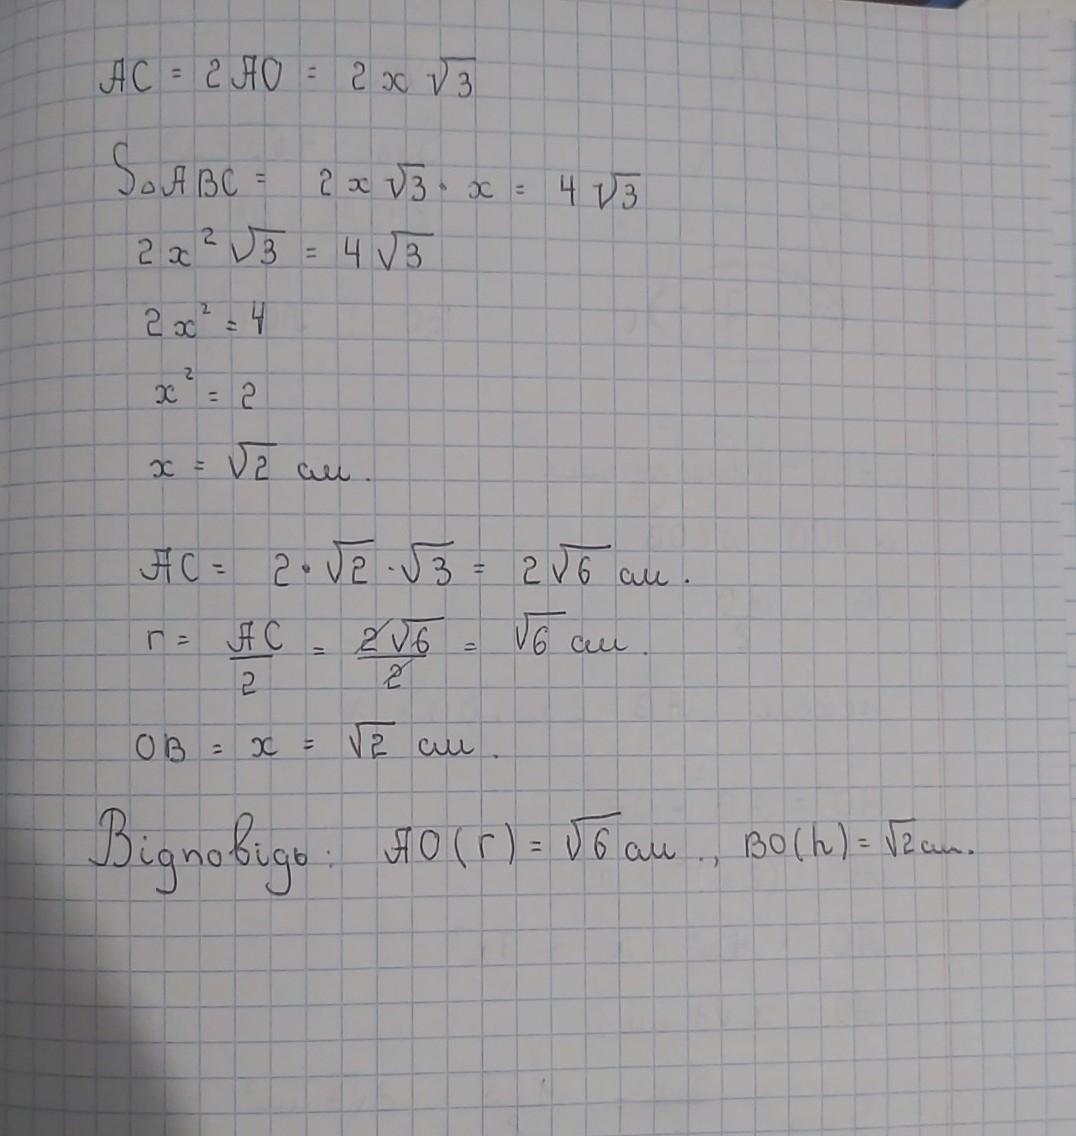 AC = 2AO = 2x√3
S△ABC = 2x√3 · x = 4√3
2x²√3 = 4√3
2x² = 4
x² = 2
x = √2 см.
AC = 2·√2·√3 = 2√6 см.
r = AC/2 = 2√6/2 = √6 см.
OB = x = √2 см.
Відповідь: AO(r) = √6 см., BO(h) = √2 см.